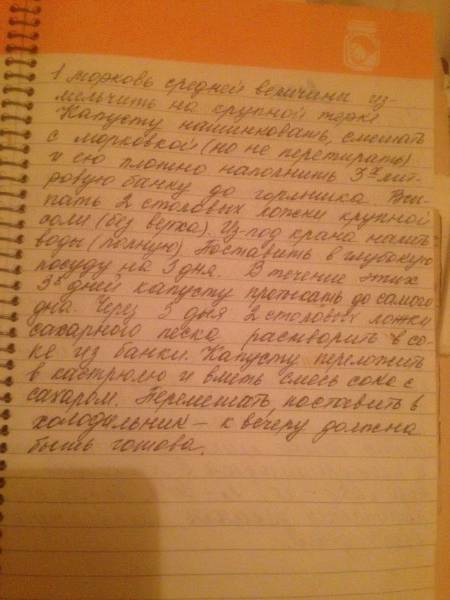 1 морковь средней величины из-
мельчить на крупной терке
Капусту нашинковать, смешать
с морковкой (но не перетирать)
и ею плотно наполнить 3х лит-
ровую банку до горлышка. Всы-
пать 2 столовых ложки крупной
соли (без верха). Из-под крана налить
воды (полную). Поставить в глубокую
посуду на 3 дня. В течение этих
3х дней капусту протыкать до самого
дна. Через 3 дня 2 столовых ложки
сахарного песка растворить в со-
ке из банки. Капусту переложить
в кастрюлю и влить смесь сока с
сахаром. Перемешать, поставить в
холодильник - к вечеру должна
быть готова.